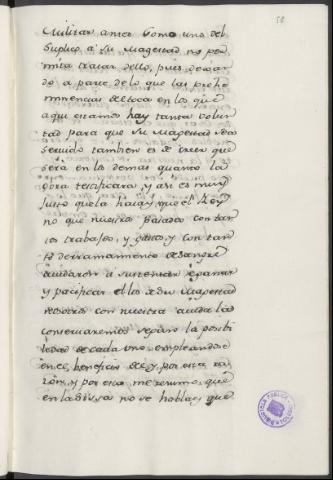 58
Militar antes como uno del
Suplico a Su Magestad no per
mita tratar dello, pues dexan
do a parte de lo que las prehe
minencias del toca en los que
aqui estamos hay tanta volun
tad para que Su Magestad sea
servido tambien es de creer que
sera en los demas quanto la
obra testificara, y asi es muy
justo que la haia, y que el Rey
no que nuestros pasados con tan
tos trabajos, y gastos, y con tan
to derramamiento de sangre
aiudaron a sustentar, e ganar
y pacificar el los a Su Magestad
nosotros con nuestra aiuda las
conservaremos segun la posibi
lidad de cada uno empleandose
en el beneficio de el, y por esta ra
zon, y por esta me resumo, que
en la sissa no se hable, y que
BIBLIOTECA PUBLICA
TOLEDO